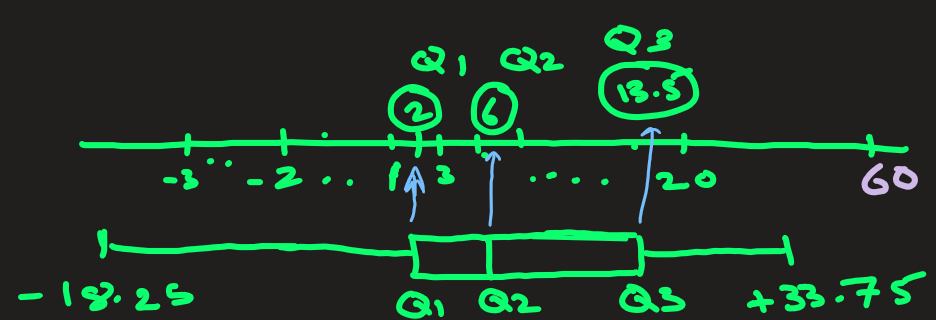 Q1 Q2 Q3
2 6 13.5
-3 .. -2 .. 1 3 .... 20 60
-18.25 Q1 Q2 Q3 +33.75